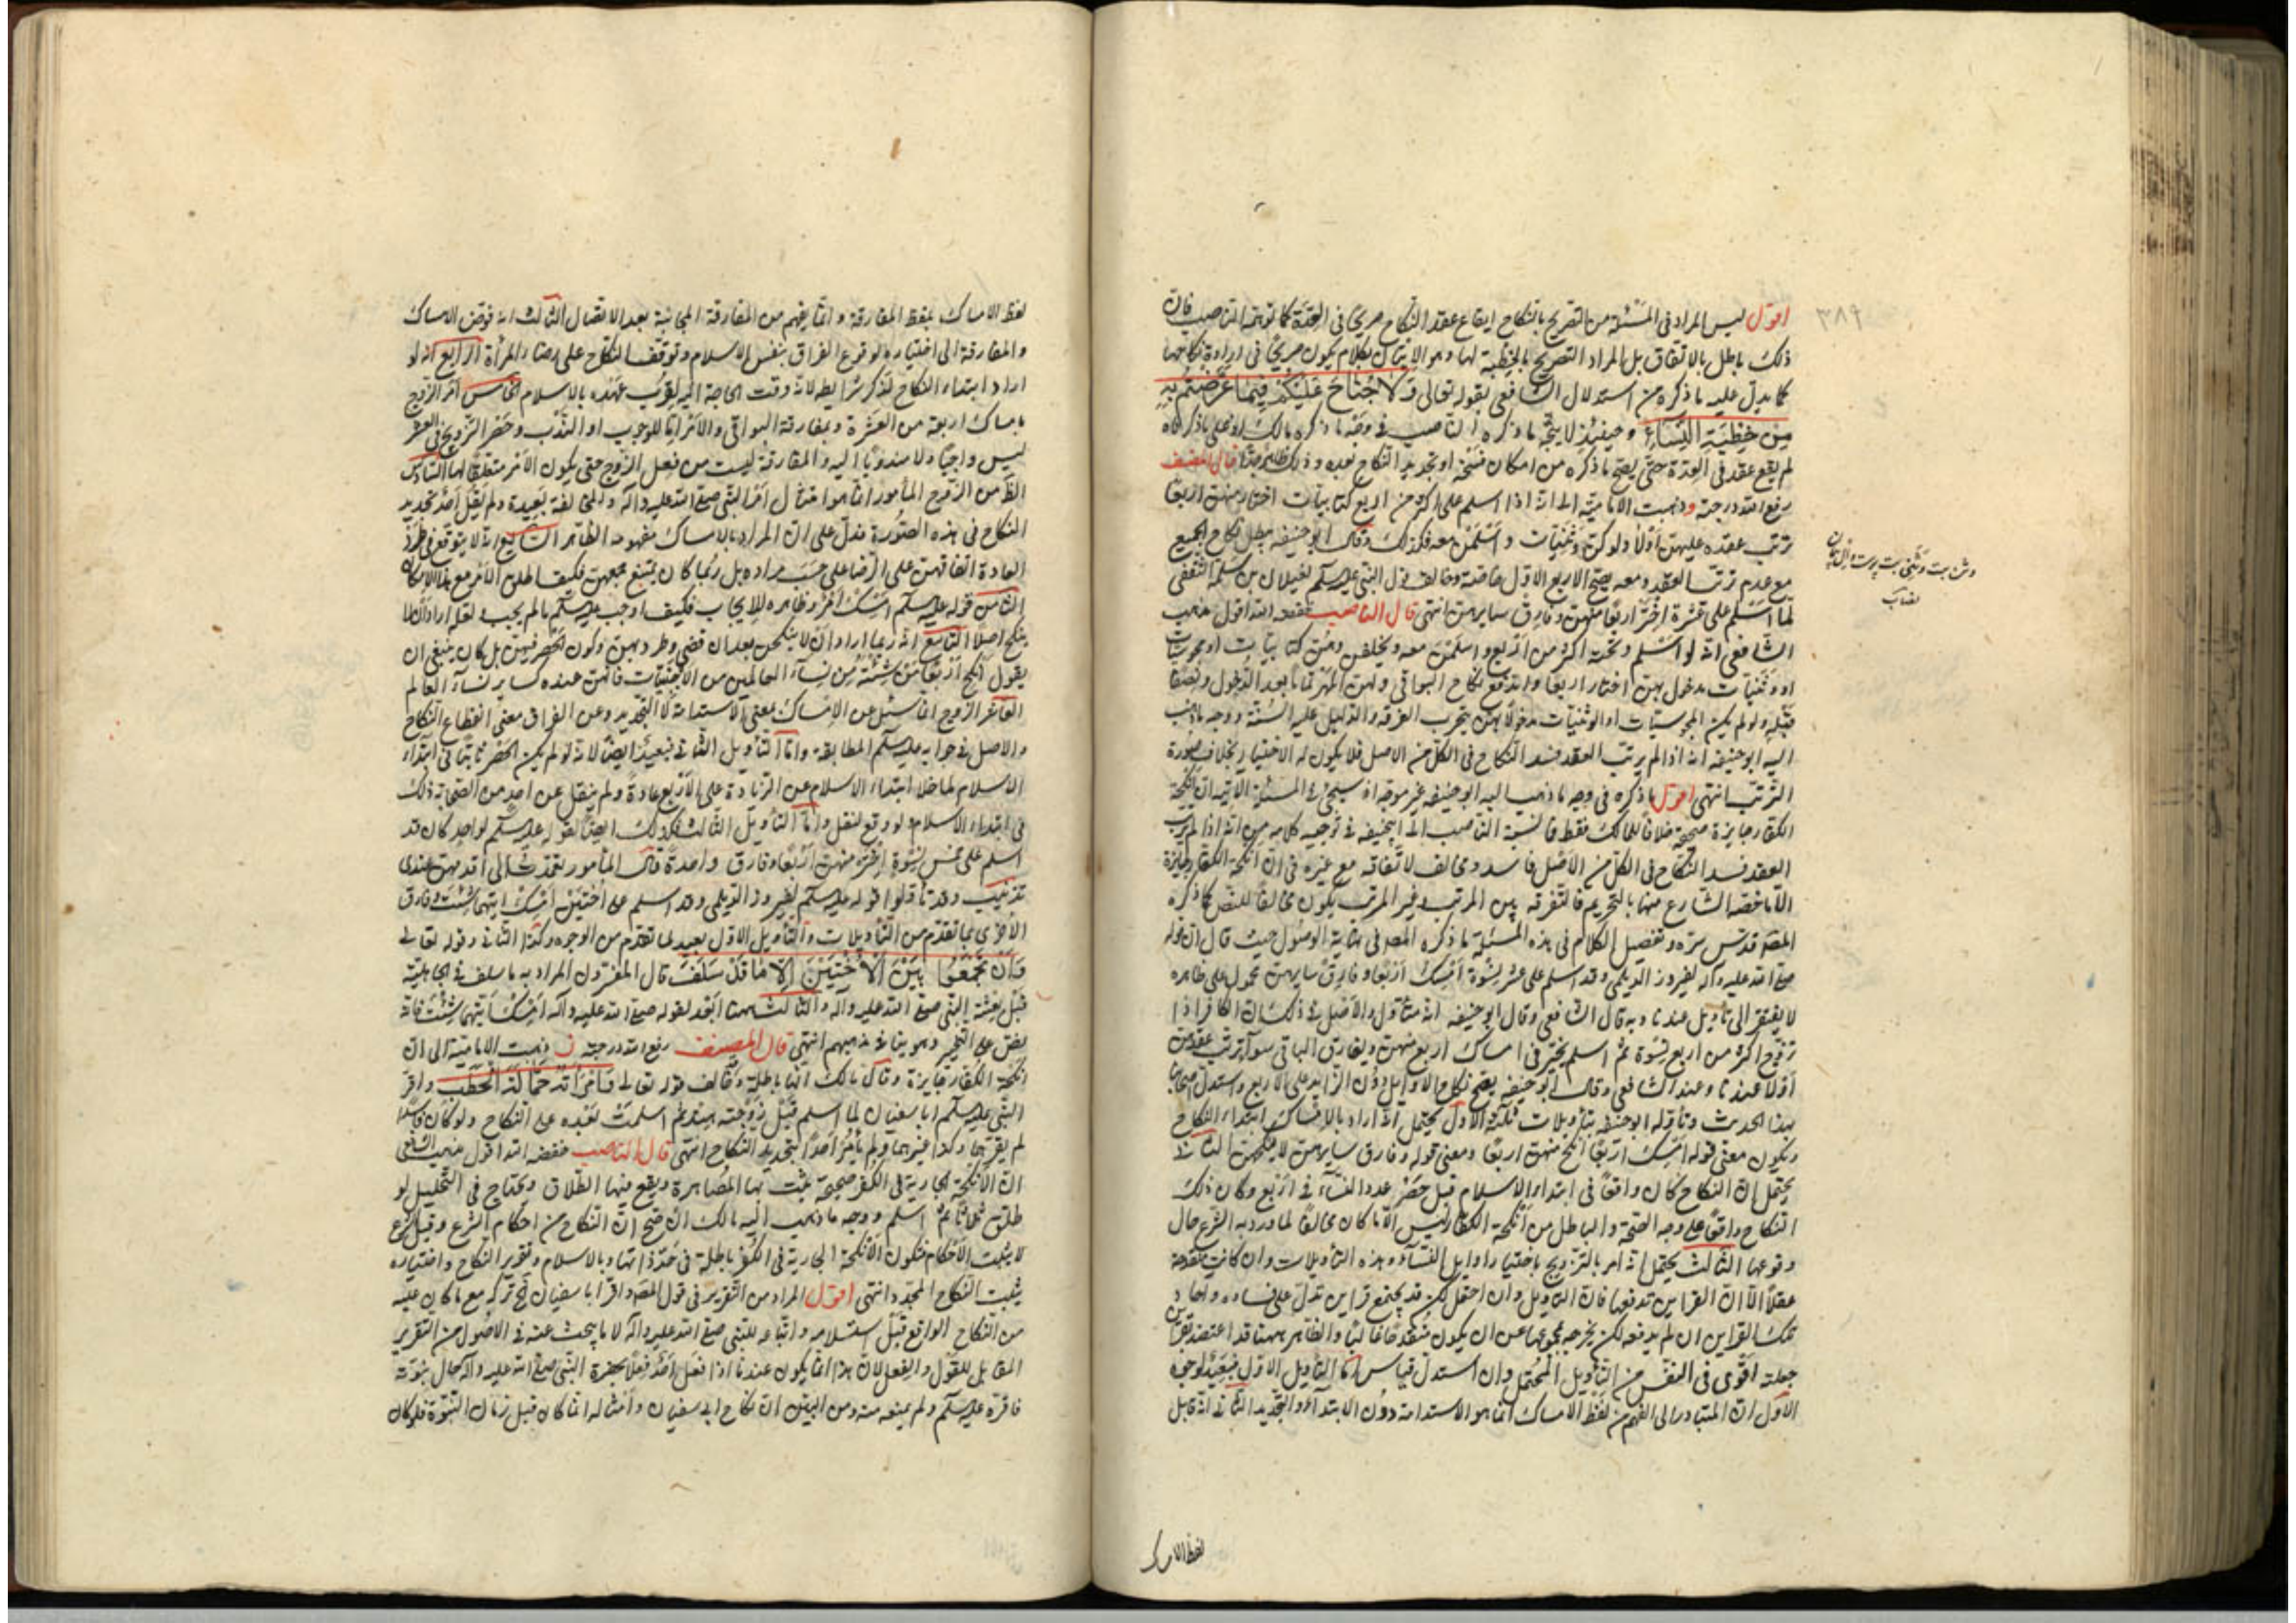 ٣٨٩
اقول ليس المراد فى المسئلة من التصريح بالنكاح ايقاع عقد النكاح صريحًا فى العدّة كما توهّمه الناصب فانّ
ذلك باطل بالاتفاق بل المراد التصريح بالخِطْبة لها وهو الاتيان بكلام يكون صريحًا فى ارادة نكاحها
كما يدلّ عليه ما ذكره من استدلال الشافعى بقوله تعالى وَلَا جُنَاحَ عَلَيْكُمْ فِيمَا عَرَّضْتُمْ بِهِ
مِنْ خِطْبَةِ النِّسَاءِ وحينئذ لا يتّجه ما ذكره الناصب فى وجه ما ذكره مالك اذ على ما ذكرناه
لم يقع عقد فى العدّة حتى يصحّ ما ذكره من امكان فسخه او تجديد النكاح بعده وذلك ظاهر جدًّا قال المصنف
رفع الله درجته و ذهبت الامامية الى انه اذا اسلم على اكثر من اربع كتابيات اختار منهنّ اربعًا
ترتب عقده عليهن اوّلًا ولو كنّ وثنيات واسلمن معه فكذلك وقال ابو حنيفه يبطل نكاح الجميع
مع عدم ترتب العقد ومعه يصحّ الاربع الاوّل خاصة وخالف قول النبى عليه السلم لغيلان بن سلمة الثقفى
لما اسلم على عشرة اختر اربعًا منهن وفارق سايرهن انتهى قال الناصب خفضه الله اقول مذهب
الشافعى انه لو اسلم وتحته اكثر من اربع واسلمن معه وتخلفن وهنّ كتابيات او مجوسيات
او وثنيات مدخول بهن اختار اربعًا واندفع نكاح البواقى ولهن المهر تمامًا بعد الدخول ونصفًا
قبله ولو لم يكن المجوسيات او الوثنيات مدخولًا بهنّ الفرقه والدليل عليه السنّة ووجه ما ذهب
اليه ابو حنيفه انه اذا لم يرتب العقد فسد النكاح فى الكل من الاصل فلا يكون له الاختيار بخلاف صورة
الترتب انتهى اقول ما ذكره فى وجه ما ذهب اليه ابو حنيفه غير موجه اذ سيجئ فى المسئلة الآتيه ان انكحة
الكفار جايزة صحيحة خلافًا لمالك فقط فما نسبه الناصب الى ابيحنيفه فى توجيه كلامه من انه اذا لم يرتب
العقد فسد النكاح فى الكل من الاصل فاسد ومخالف لاتفاقه مع غيره فى ان انكحة الكفار جايزة
الّا ما خصه الشارع منها بالتحريم فالتفرقه بين المرتب وغير المرتب يكون مخالفًا للنصّ كما ذكره
المصه قدس سره وتفصيل الكلام فى هذه المسئلة ما ذكره المصه فى نهاية الوصول حيث قال ان قوله
صلى الله عليه وآله لفيروز الديلمى وقد اسلم على عشر نسوة امسك اربعًا وفارق سايرهن محمول على ظاهره
لا يفتقر الى تأويل عندنا وبه قال الشافعى وقال ابو حنيفه انه متأول والاصل فى ذلك ان الكافر اذا
تزوج اكثر من اربع نسوة ثم اسلم يخير فى امساك اربع منهن ويفارق الباقى سوآ ترتب عقدهن
اولًا عندنا وعند الشافعى وقال ابو حنيفه يصح نكاح الاوايل دون الزايد على الاربع واستدل اصحابنا
بهذا الحديث وتأوله ابو حنيفه بتأويلات ثلثة الاول يحتمل انه اراد بالامساك ابتداء النكاح
ويكون معنى قوله امسك اربعًا انكح منهن اربعًا ومعنى قوله وفارق سايرهن لا تنكحهن الثانى
يحتمل ان النكاح كان واقعًا فى ابتداء الاسلام قبل حصر عدد النسآء فى اربع وكان ذلك
النكاح واقعًا على وجه الصحة والباطل من انكحة الكفار ليس الّا ما كان مخالفًا لما ورد به الشرع حال
وقوعها الثالث يحتمل انه امر بالتزويج باختيار اوايل النسآء وهذه التأويلات وان كانت منقدحة
عقلًا الّا ان القراين تدفعها فان التأويل وان احتمل لكن قد يجتمع قراين تدلّ على فساده وآحاد
تلك القراين ان لم يدفعه لكن يخرجه مجموعها عن ان يكون منقدحًا غالبًا والظاهر ههنا قد اعتضد بقراين
جعلته اقوى فى النفس من التأويل المحتمل وان استدل بقياس امّا التأويل الاول فبعيد لوجوه
الاول ان المتبادر الى الفهم من لفظ الامساك انما هو الاستدامة دون الابتدآء والتجديد الثانى انه قابل
لفظ الامساك
لفظ الامساك بلفظ المفارقة وانما يفهم من المفارقة المجانبة بعد الاتصال الثالث انه فوّض الامساك
والمفارقة الى اختياره لوقوع الفراق بنفس الاسلام وتوقف النكاح على رضاء المرأة الرابع انه لو
اراد ابتداء النكاح لذكر شرايطه لانه وقت الحاجة اليه لقرب عهده بالاسلام الخامس امر الزوج
بامساك اربعة من العشرة وبمفارقة البواقى والامر امّا للوجوب او الندب وحصر التزويج فى العشر
ليس واجبًا ولا مندوبًا اليه والمفارقة ليست من فعل الزوج حتى يكون الامر متعلقًا لها السادس
الظ من الزوج المأمور انما هو امتثال امر النبى صلى الله عليه وآله والمخالفة بعيدة ولم ينقل احد تجديد
النكاح فى هذه الصورة فدلّ على ان المراد بالامساك مفهومه الظاهر السابع انه لا يتوقع فى طرد
العادة اتفاقهن على الرضا على حسب مراده بل ربما كان يمتنع جميعهن فكيف اطلق الامر مع هذا الامكان
الثامن قوله عليه السلم امسك امر وظاهره للايجاب فكيف اوجب عليه السلم ما لم يجب ولعله اراد ان لا
ينكح اصلًا التاسع انه ربما اراد ان لا ينكحن بعد ان قضى وطره منهن وكون الحصر فيهن بل كان ينبغى ان
يقول انكح اربعًا من شئت من نسآء العالمين من الاجنبيات فانهن عنده كساير نسآء العالم
العاشر الزوج انما سئل عن الامساك بمعنى الاستدامة لا التجديد وعن الفراق بمعنى انقطاع النكاح
والاصل فى جوابه عليه السلم المطابقة وامّا التأويل الثانى فبعيد ايضًا لانه لو لم يكن الحصر ثابتًا فى ابتداء
الاسلام لما خلا ابتداء الاسلام عن الزيادة على الاربع عادة ولم ينقل عن احد من الصحابة ذلك
فى ابتداء الاسلام ولو وقع لنقل وامّا التأويل الثالث فكذلك ايضًا لقوله عليه السلم لواحد كان قد
اسلم على خمس نسوة اختر منهن اربعًا وفارق واحدة قال المأمور فعمدت الى اقدمهن عندى
تذنيب وقد تأولوا قوله عليه السلم لفيروز الديلمى وقد اسلم على اختين امسك ايتهما شئت وفارق
الاخرى بما تقدم من التأويلات والتأويل الاول بعيد لما تقدم من الوجوه وكذا الثانى وقوله تعالى
وَأَنْ تَجْمَعُوا بَيْنَ الْأُخْتَيْنِ إِلَّا مَا قَدْ سَلَفَ قال المفسرون المراد به ما سلف فى الجاهلية
قبل بعثة النبى صلى الله عليه وآله والثالث ههنا ابعد لقوله صلى الله عليه وآله امسك ايتهما شئت فانه
نصّ على التخير وهو ينافى مذهبهم انتهى قال المصنف رفع الله درجته ذهبت الامامية الى ان
انكحة الكفار جايزة وقال مالك انها باطلة وخالف قوله تعالى وَامْرَأَتُهُ حَمَّالَةَ الْحَطَبِ واقرّ
النبى عليه السلم ابا سفيان لما اسلم قبل زوجته هند ثم اسلمت بعده على النكاح ولو كان فاسدًا
لم يقرّهما وكذا غيرهما ولم يأمر احدًا بتجديد النكاح انتهى قال الناصب خفضه الله اقول مذهب الشافعى
ان الانكحة الجارية فى الكفر صحيحة يثبت بها المصاهرة ويقع فيها الطلاق ويحتاج فى التحليل لو
طلق ثلاثًا ثم اسلم ووجه ما ذهب اليه مالك ان صحّ ان النكاح من احكام الشرع وقبل الشرع
لا يثبت الاحكام فتكون الانكحة الجارية فى الكفر باطلة فى حدّ ذاتها وبالاسلام وتقرير النكاح واختياره
يثبت النكاح المجدد انتهى اقول المراد من التقرير فى قول المصه واقرّ ابا سفيان الخ تركه مع ما كان عليه
من النكاح الواقع قبل استسلامه واتباعه للنبى صلى الله عليه وآله لا ما يبحث عنه فى الاصول من التقرير
المقابل للقول والفعل لان هذا انما يكون عندنا اذا فعل احد فعلًا بحضرة النبى صلى الله عليه وآله حال نبوّته
فاقرّه عليه السلم ولم يمنعه منه ومن البيّن ان نكاح ابى سفيان وامثاله انما كان قبل زمان النبوّة فلو كان